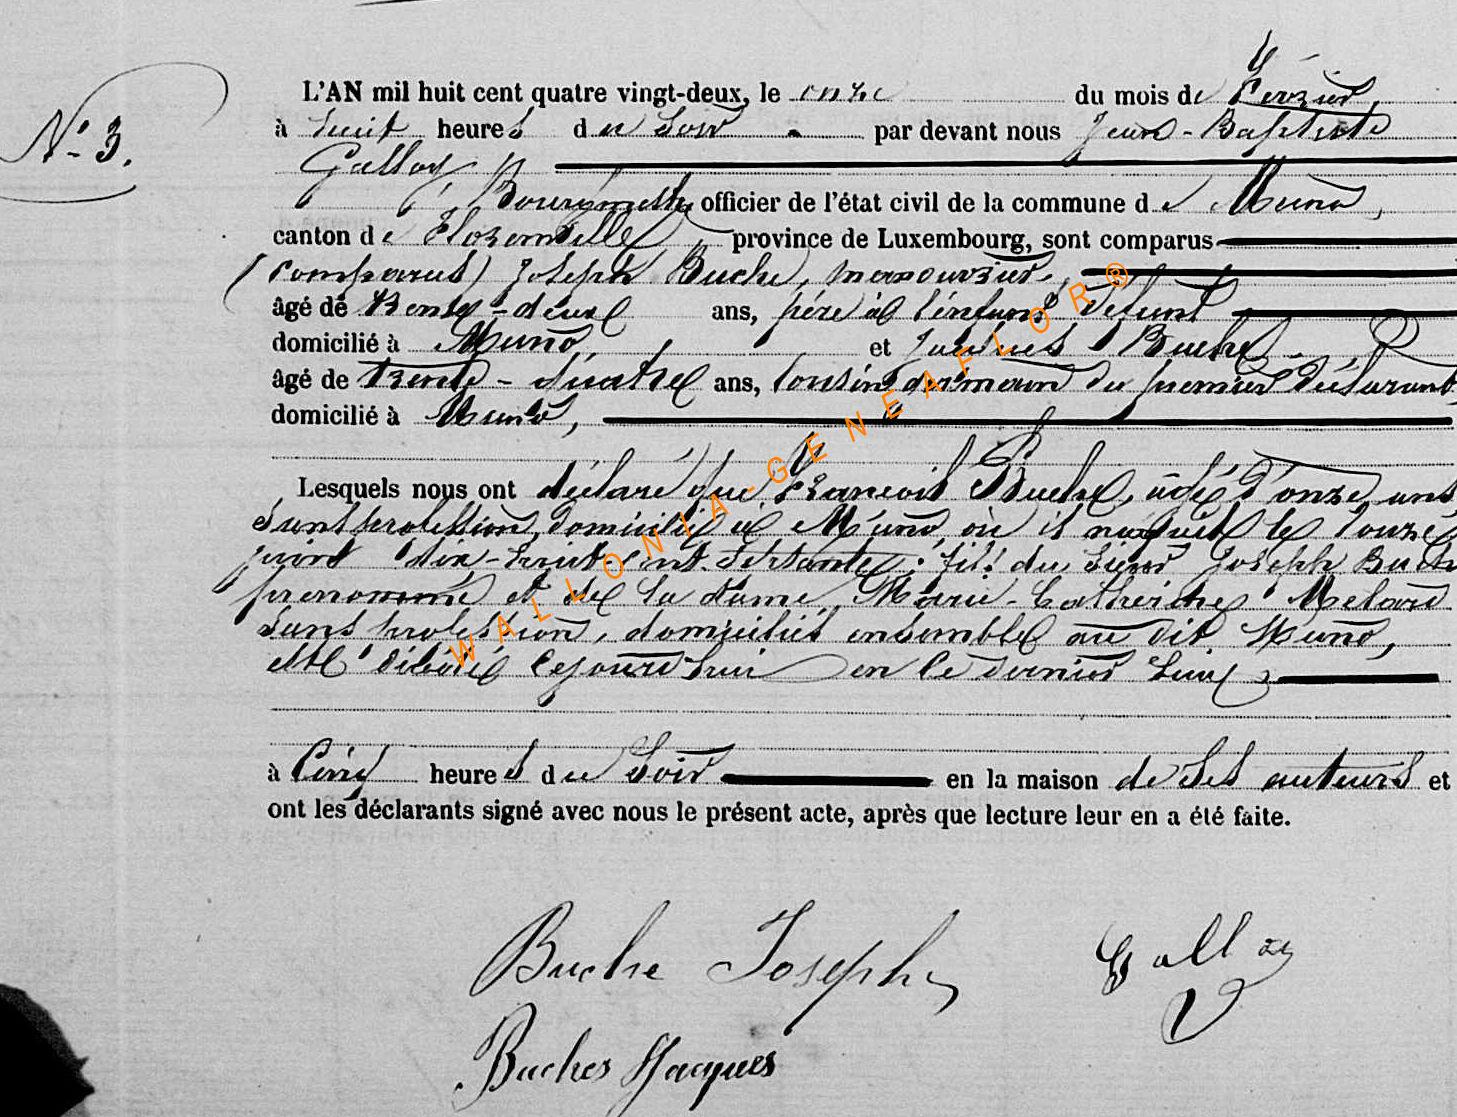 L'AN mil huit cent quatre vingt-deux, le onze du mois de février,
N° 3.
à huit heures du soir par devant nous Jean-Baptiste
Galloy
Bourgmestre officier de l'état civil de la commune de Muno,
canton de Florenville province de Luxembourg, sont comparus
(comparus) Joseph Buche, manouvrier,
âgé de trente-deux ans, père à l'enfant défunt
domicilié à Muno et Jacques Buche
âgé de trente-quatre ans, cousin germain du premier déclarant,
domicilié à Muno,
Lesquels nous ont déclaré que François Buche, âgé d'onze ans
sans profession, domicilié à Muno, où il naquit le douze
dix-huit-cent-septante, fils du sieur Joseph Buche
prénommé et de la dame Marie-Catherine
sans profession, domiciliés ensemble au dit Muno,
est décédé cejourd'hui en ce dernier lieu,
à cinq heures du soir en la maison de ses auteurs et
ont les déclarants signé avec nous le présent acte, après que lecture leur en a été faite.
Buche Joseph Galloy
Buches Jacques
WALLONIA-GENEAFLOR®